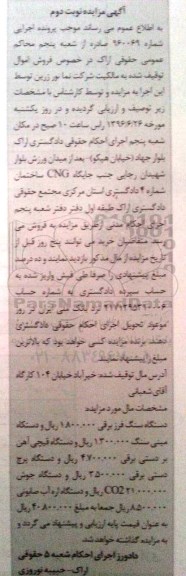 آگهی مزایده نوبت دوم
به اطلاع عموم می رساند بموجب پرونده اجرایی
شماره ۹۶۰۰۶۲ صادره از شعبه پنجم محاکم
عمومی حقوقی اراک در خصوص فروش اموال
توقیف شده به مالکیت شرکت نما پور زرین توسط
این اجرا به مزایده و توسط کارشناس با مشخصات
زیر توصیف و ارزیابی گردیده و در روز یکشنبه
مورخه ۱۳۹۶/۶/۲۶ راس ساعت ۱۰ صبح در مکان
شعبه پنجم اجرای احکام حقوقی دادگستری اراک
بلوار جهاد (خیابان هپکو) بعد از میدان ورزش بلوار
شهیدان رجایی جنب جایگاه CNG ساختمان
شماره ۴ دادگستری استان مرکزی مجتمع حقوقی
دادگستری اراک طبقه اول دفتر دفتر شعبه پنجم
اجرای احکام مدنی از طریق مزایده به فروش می
رسد متقاضیان خرید می توانند پنج روز قبل از
تاریخ مزایده از مال مذکور بازدید نمایند و ده درصد
مبلغ پیشنهادی را صرفا طی فیش واریز شده به
حساب سپرده دادگستری به شماره حساب
نزد بانک ملی ایران در روز
موعود تحویل اجرای احکام حقوقی دادگستری
دهند. برنده مزایده کسی خواهد بود که بالاترین
مبلغ را پیشنهاد نمایند.
آدرس مال توقیف شده: خیرآباد خیابان ۱۰۴ کارگاه
آقای شعبانی
مشخصات مال مورد مزایده
دستگاه سنگ فرز برقی ۱۸۰۰۰۰۰ ریال و دستگاه
مینی سنگ ۱۳۰۰۰۰۰ ریال و دستگاه قیچی آهن
بر دستی برقی ۴۷۰۰۰۰۰ ریال و دستگاه پرچ
دستی برقی ۳۵۰۰۰۰۰ ریال و دستگاه جوش
CO2 ۲۱۰۰۰۰۰۰ ریال و دستگاه اره آب صابونی
۸۵۰۰۰۰۰ ریال جمعا به مبلغ ۴۰۸۰۰۰۰۰ ریال
به عنوان قیمت پایه ارزیابی و پیشنهاد می گردد و
به مزایده گذاشته خواهد شد.
دادورز اجرای احکام شعبه ۵ حقوقی
اراک - حبیبه نوروزی